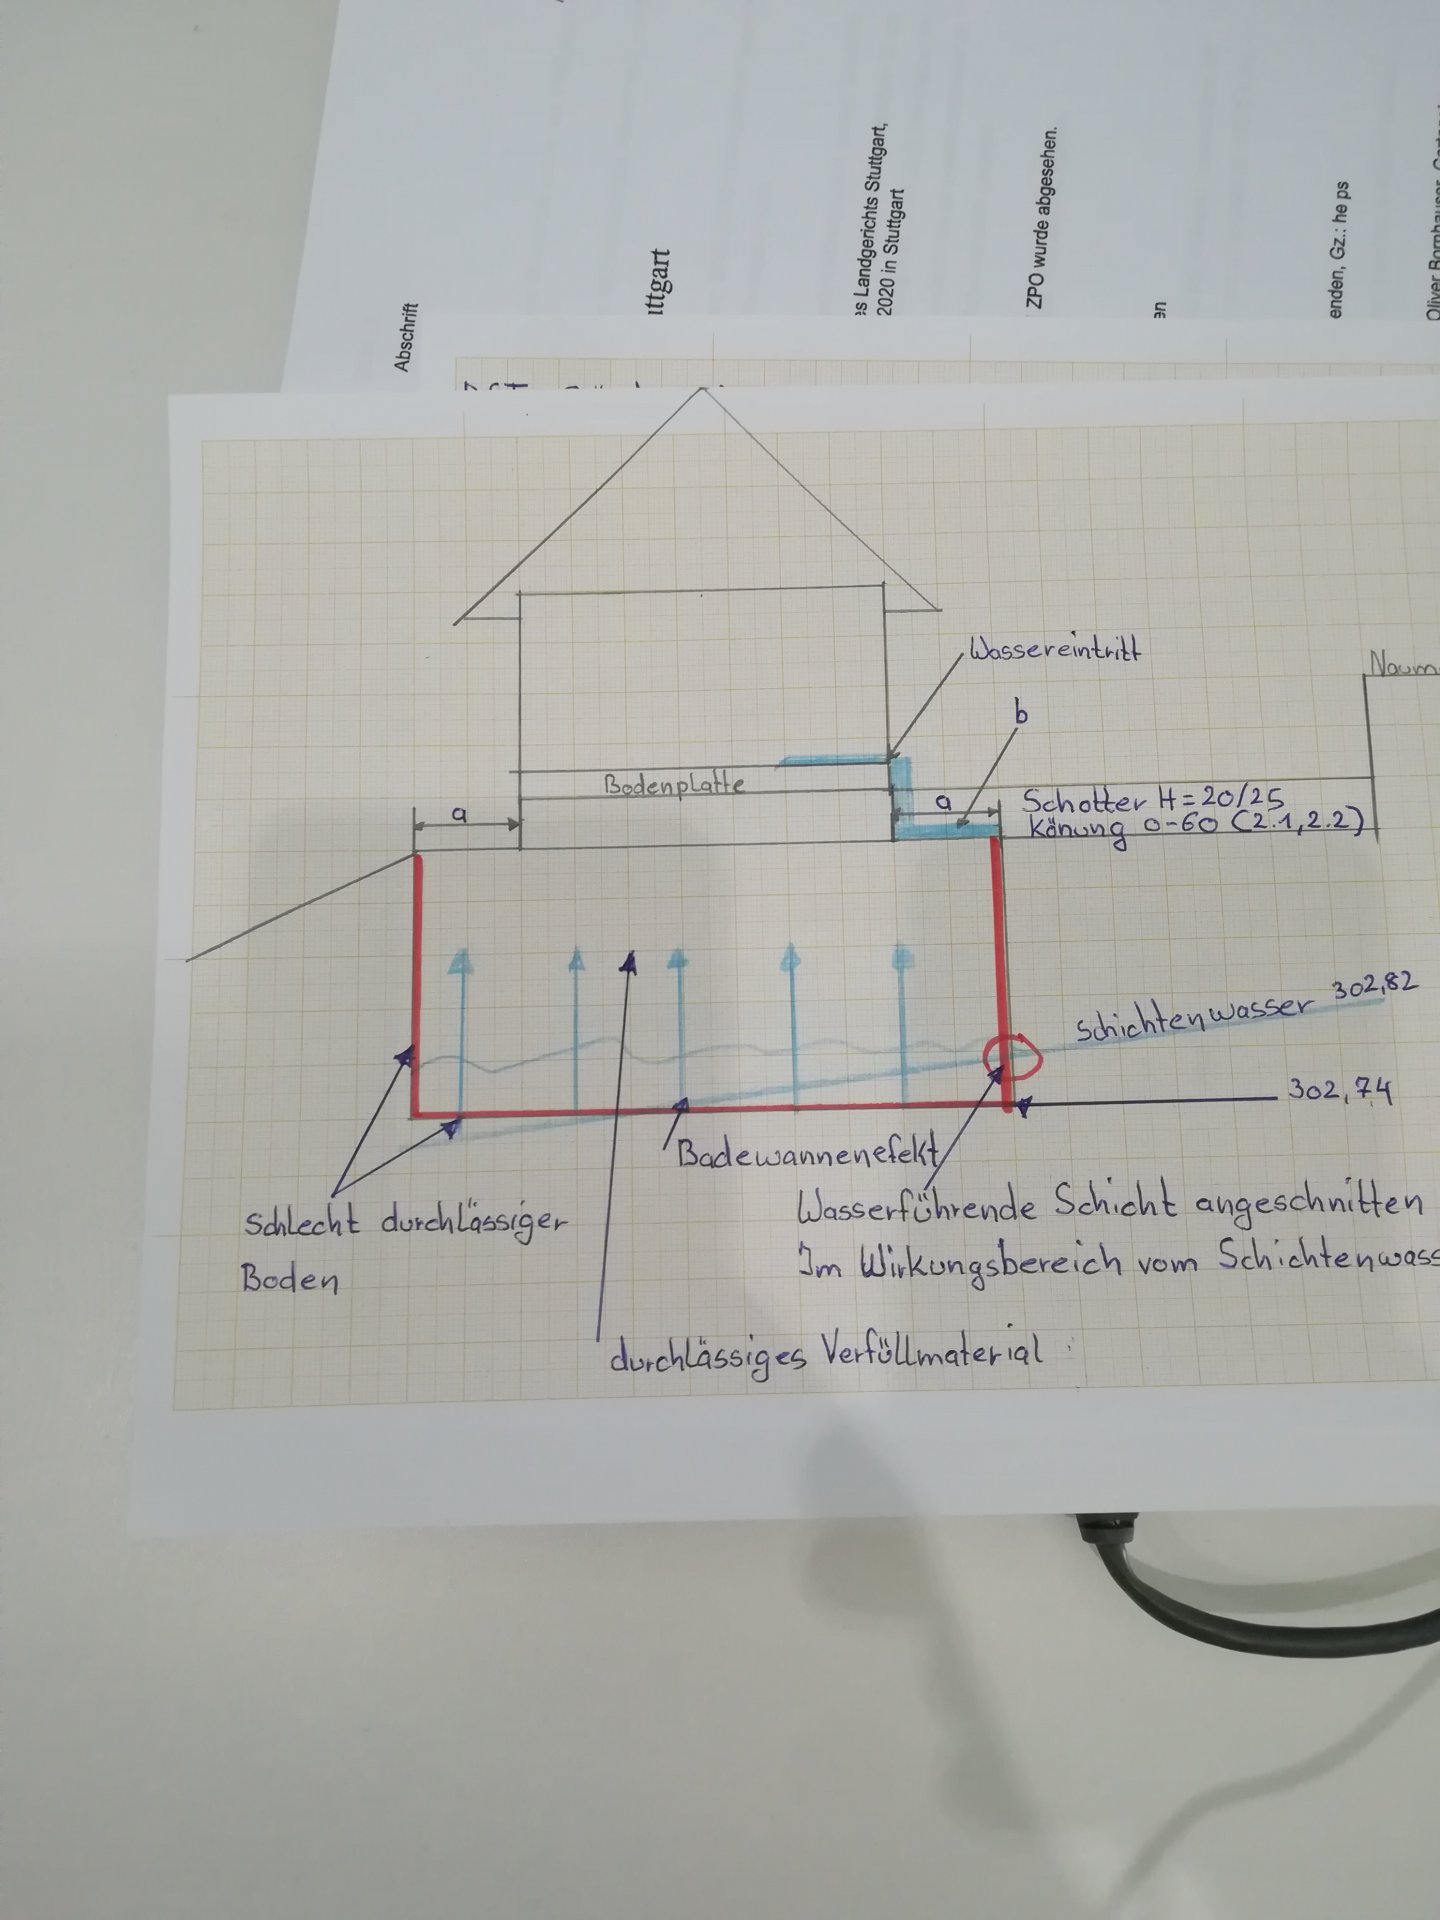 Abschrift
ttgart
s Landgerichts Stuttgart,
2020 in Stuttgart
ZPO wurde abgesehen.
en
enden, Gz.: he ps
Wassereintritt
b
Bodenplatte
a
a
Schotter H=20/25
Könung 0-60 (2.1,2.2)
Schichtenwasser 302,82
302,74
Badewannenefekt
Schlecht durchlässiger
Boden
Wasserführende Schicht angeschnitten
Im Wirkungsbereich vom Schichtenwass
durchlässiges Verfüllmaterial